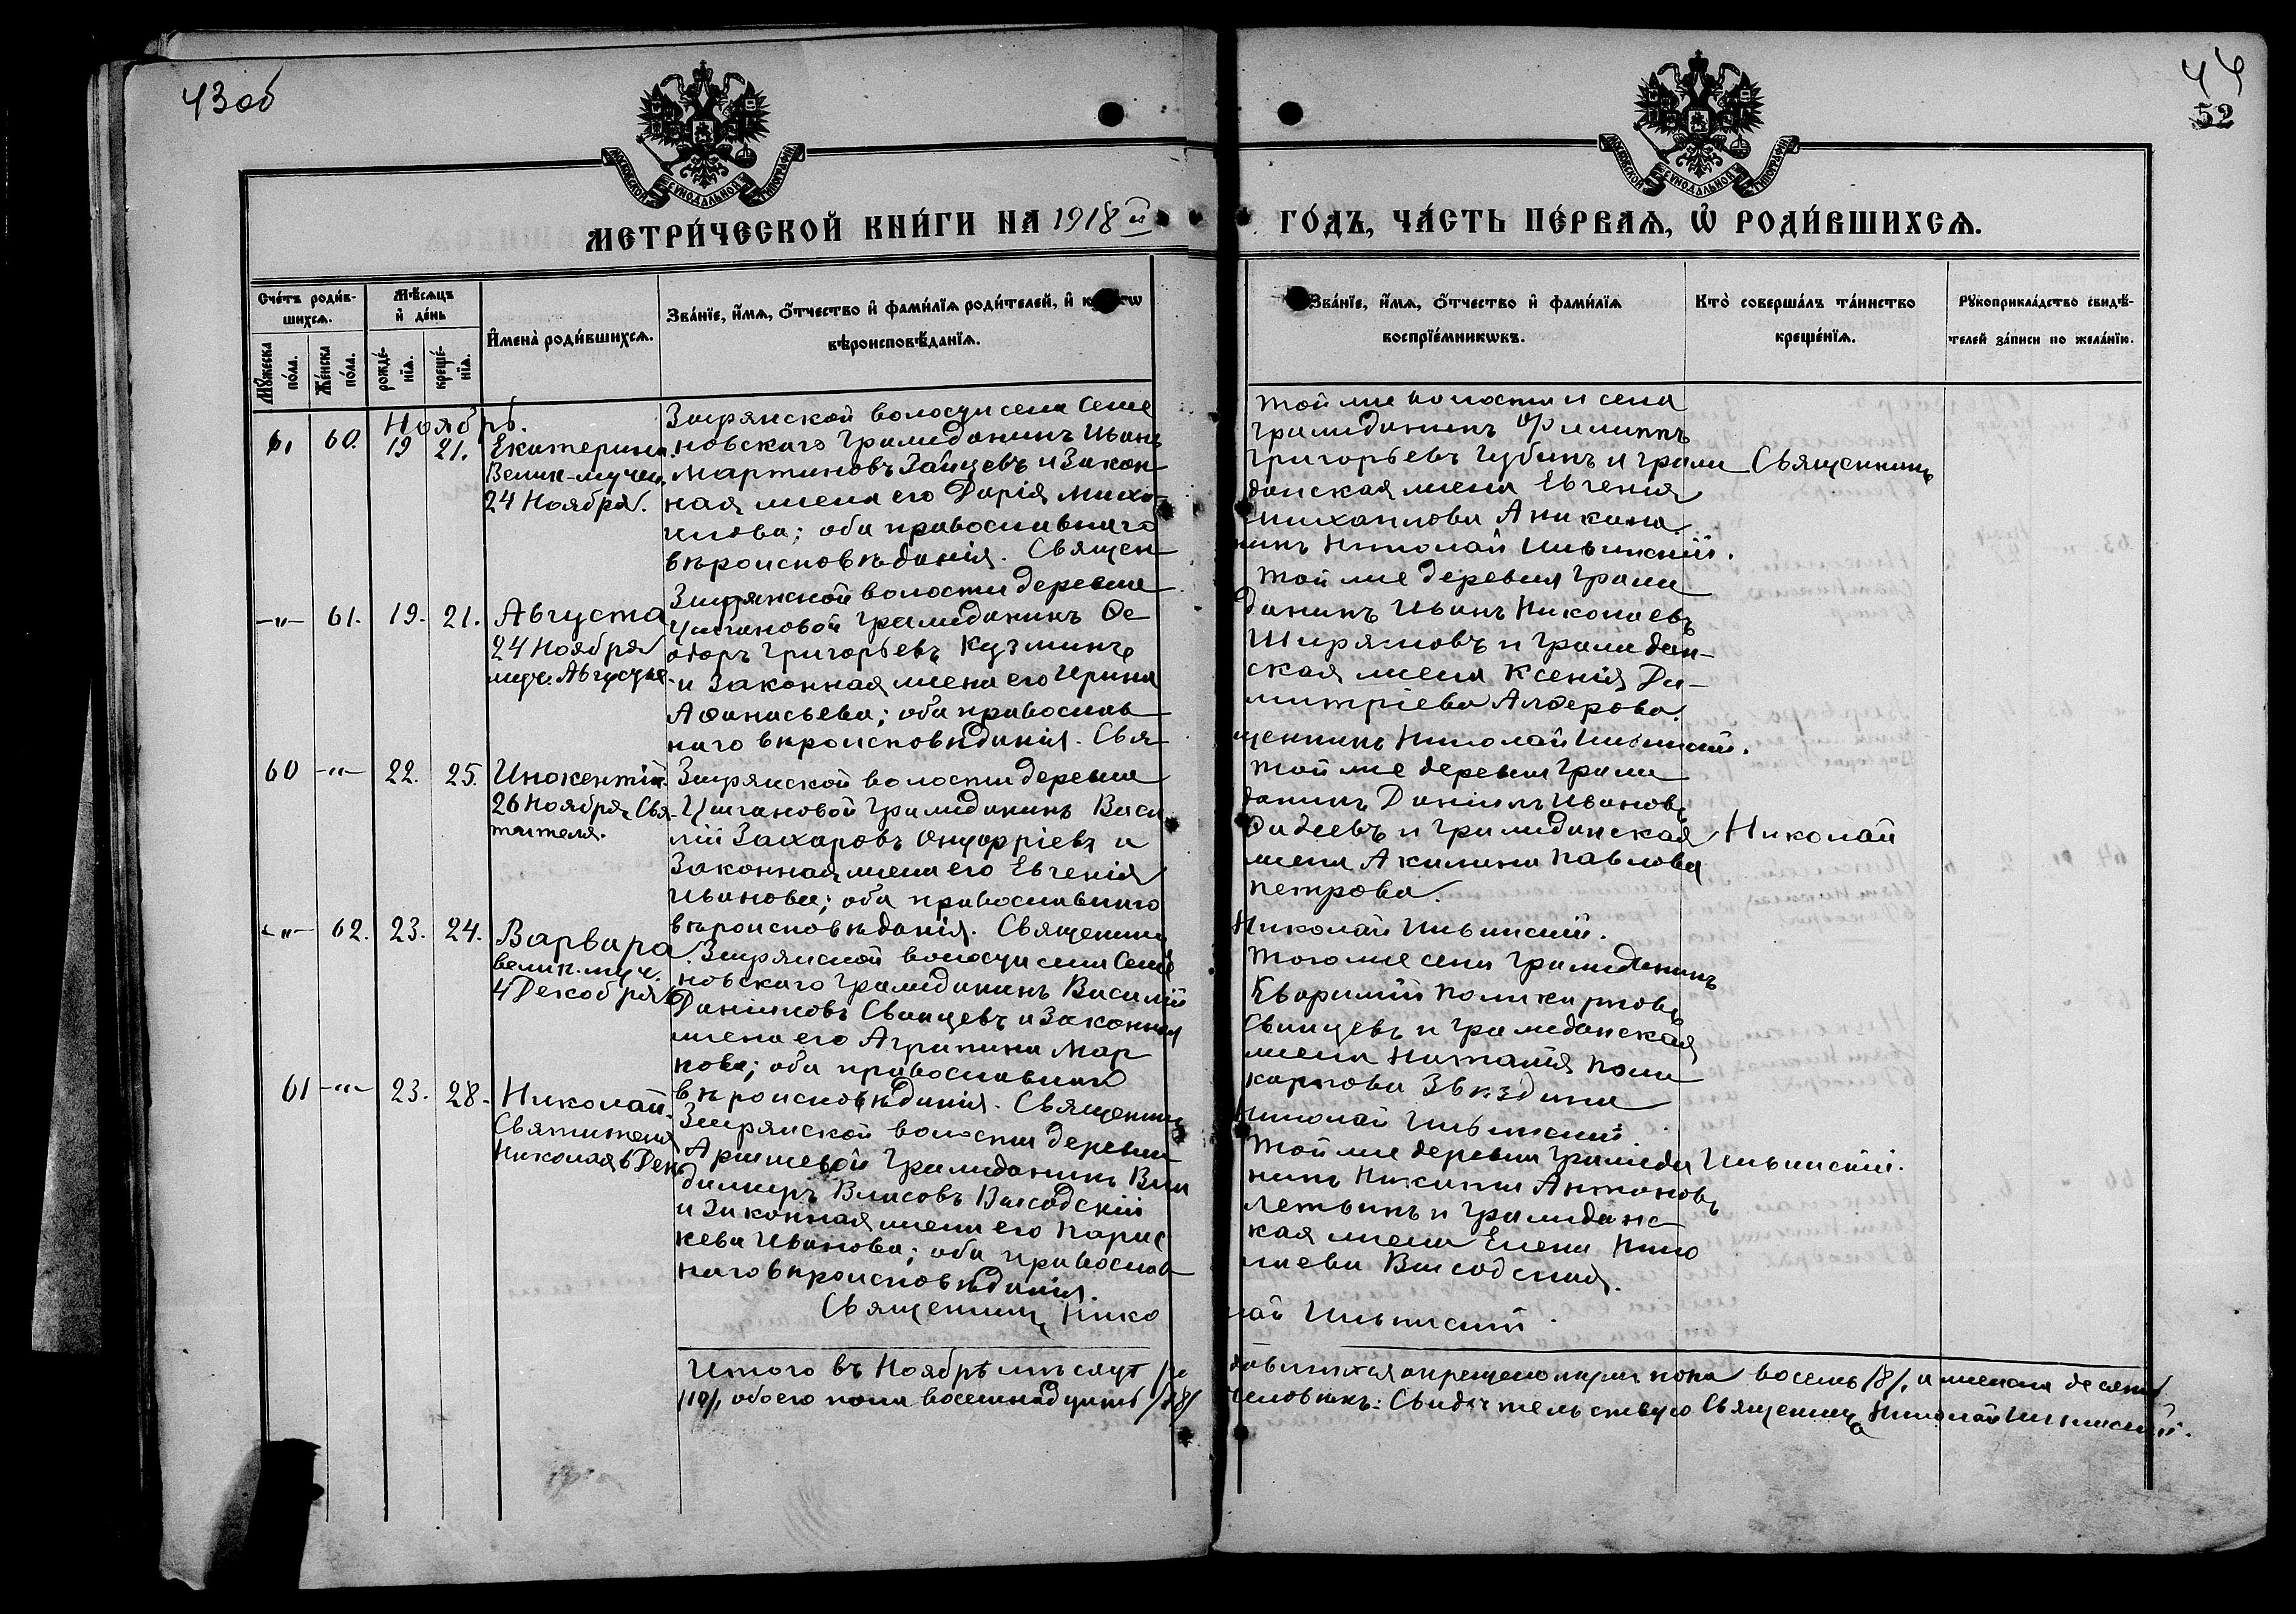 43об
44
52
МОСКОВСКОЙ СѴНОДАЛЬНОЙ ТИПОГРАФІИ
МОСКОВСКОЙ СѴНОДАЛЬНОЙ ТИПОГРАФІИ
МЕТРИ́ЧЕСКОЙ КНИ́ГИ НА 1918 й
ГО́ДЪ, ЧА́СТЬ ПЕ́РВАѦ, Ѡ҆ РОДИ́ВШИХСѦ.
Сче́тъ роди́в-
шихсѧ.
Мꙋ́жеска по́ла.
Же́нска по́ла.
Мѣ́сѧцъ
и҆ де́нь
рожде́-
нїѧ.
креще́-
нїѧ.
И҆мена̀ роди́вшихсѧ.
Зва́нїе, и҆́мѧ, ѻ҆́тчество и҆ фами́лїѧ роди́телей, и҆
вѣроисповѣ́данїѧ.
Зва́нїе, и҆́мѧ, ѻ҆́тчество и҆ фами́лїѧ
воспрїе́мникѡвъ.
Кто̀ соверша́лъ та́инство
креще́нїѧ.
Рꙋкоприкла́дство свидѣ́-
телей за́писи по жела́нїю.
Ноябрь.
60. 19 21. Екатерина.
Велик-мучен.
24 Ноября.
Зырянской волости села Семе
новскаго гражданинъ Иванъ
Мартиновъ Зайцевъ и закон
ная жена его Дарія Миха
илова; оба православнаго
вѣроисповѣданія. Священ
той же волости и села
гражданинъ Филиппъ
Григорьевъ Губинъ и граж
данская жена Евгенія
Михаилова Аникина
никъ Николай Ильинскій.
Священникъ
-"- 61. 19. 21. Августа
24 Ноября
муч. Августы
Зырянской волости деревни
Цыгановой гражданинъ Ѳе
одоръ Григорьевъ Кузминъ
и законная жена его Ирина
Аѳанасьева; оба православ
наго вѣроисповѣданія. Свя
той же деревни граж
данинъ Иванъ Николаевъ
Ширяновъ и граждан-
ская жена Ксенія Ди-
митріева Алферова.
щенникъ Николай Ильинскій.
60 -"- 22. 25. Инокентій.
26 Ноября Свя
тителя.
Зырянской волости деревни
Цыгановой гражданинъ Васи
лій Захаровъ Онуфріевъ и
законная жена его Евгенія
Иванова; оба православнаго
вѣроисповѣданія. Священникъ
той же деревни граж
данинъ Даніилъ Ивановъ
Фадеевъ и гражданская
жена Акилина Павлова
Петрова.
Николай Ильинскій.
Николай
-"- 62. 23. 24. Варвара.
велик. муч.
4 Декабря
Зырянской волости села Семе
новскаго гражданинъ Василій
Даниловъ Свинцевъ и законная
жена его Агрипина Мар
кова; оба православнаго
вѣроисповѣданія. Священникъ
того же села гражданинъ
Поликарповъ
Свинцевъ и гражданская
жена Наталія Поли
карпова Звѣздина
Николай Ильинскій.
61 -"- 23. 28. Николай.
Святителя
Николая 6 Дек
Зырянской волости деревни
гражданинъ Вла
димиръ Власовъ Высодскій
и законная жена его Парас
кева Иванова; оба православ
наго вѣроисповѣданія.
Священникъ Нико
той же деревни гражда
нинъ Никита Антоновъ
и гражданс
кая жена Елена Нико
лаева Высодская.
лай Ильинскій.
Ильинскій.
Итого въ Ноябрѣ мѣсяцѣ ро
дившихся и крещено муж. пола восемь /8/, и женска десять
/10/, обоего пола восемнадцать /18/
человѣкъ: Свидѣтельствую Священникъ Николай Ильинскій.